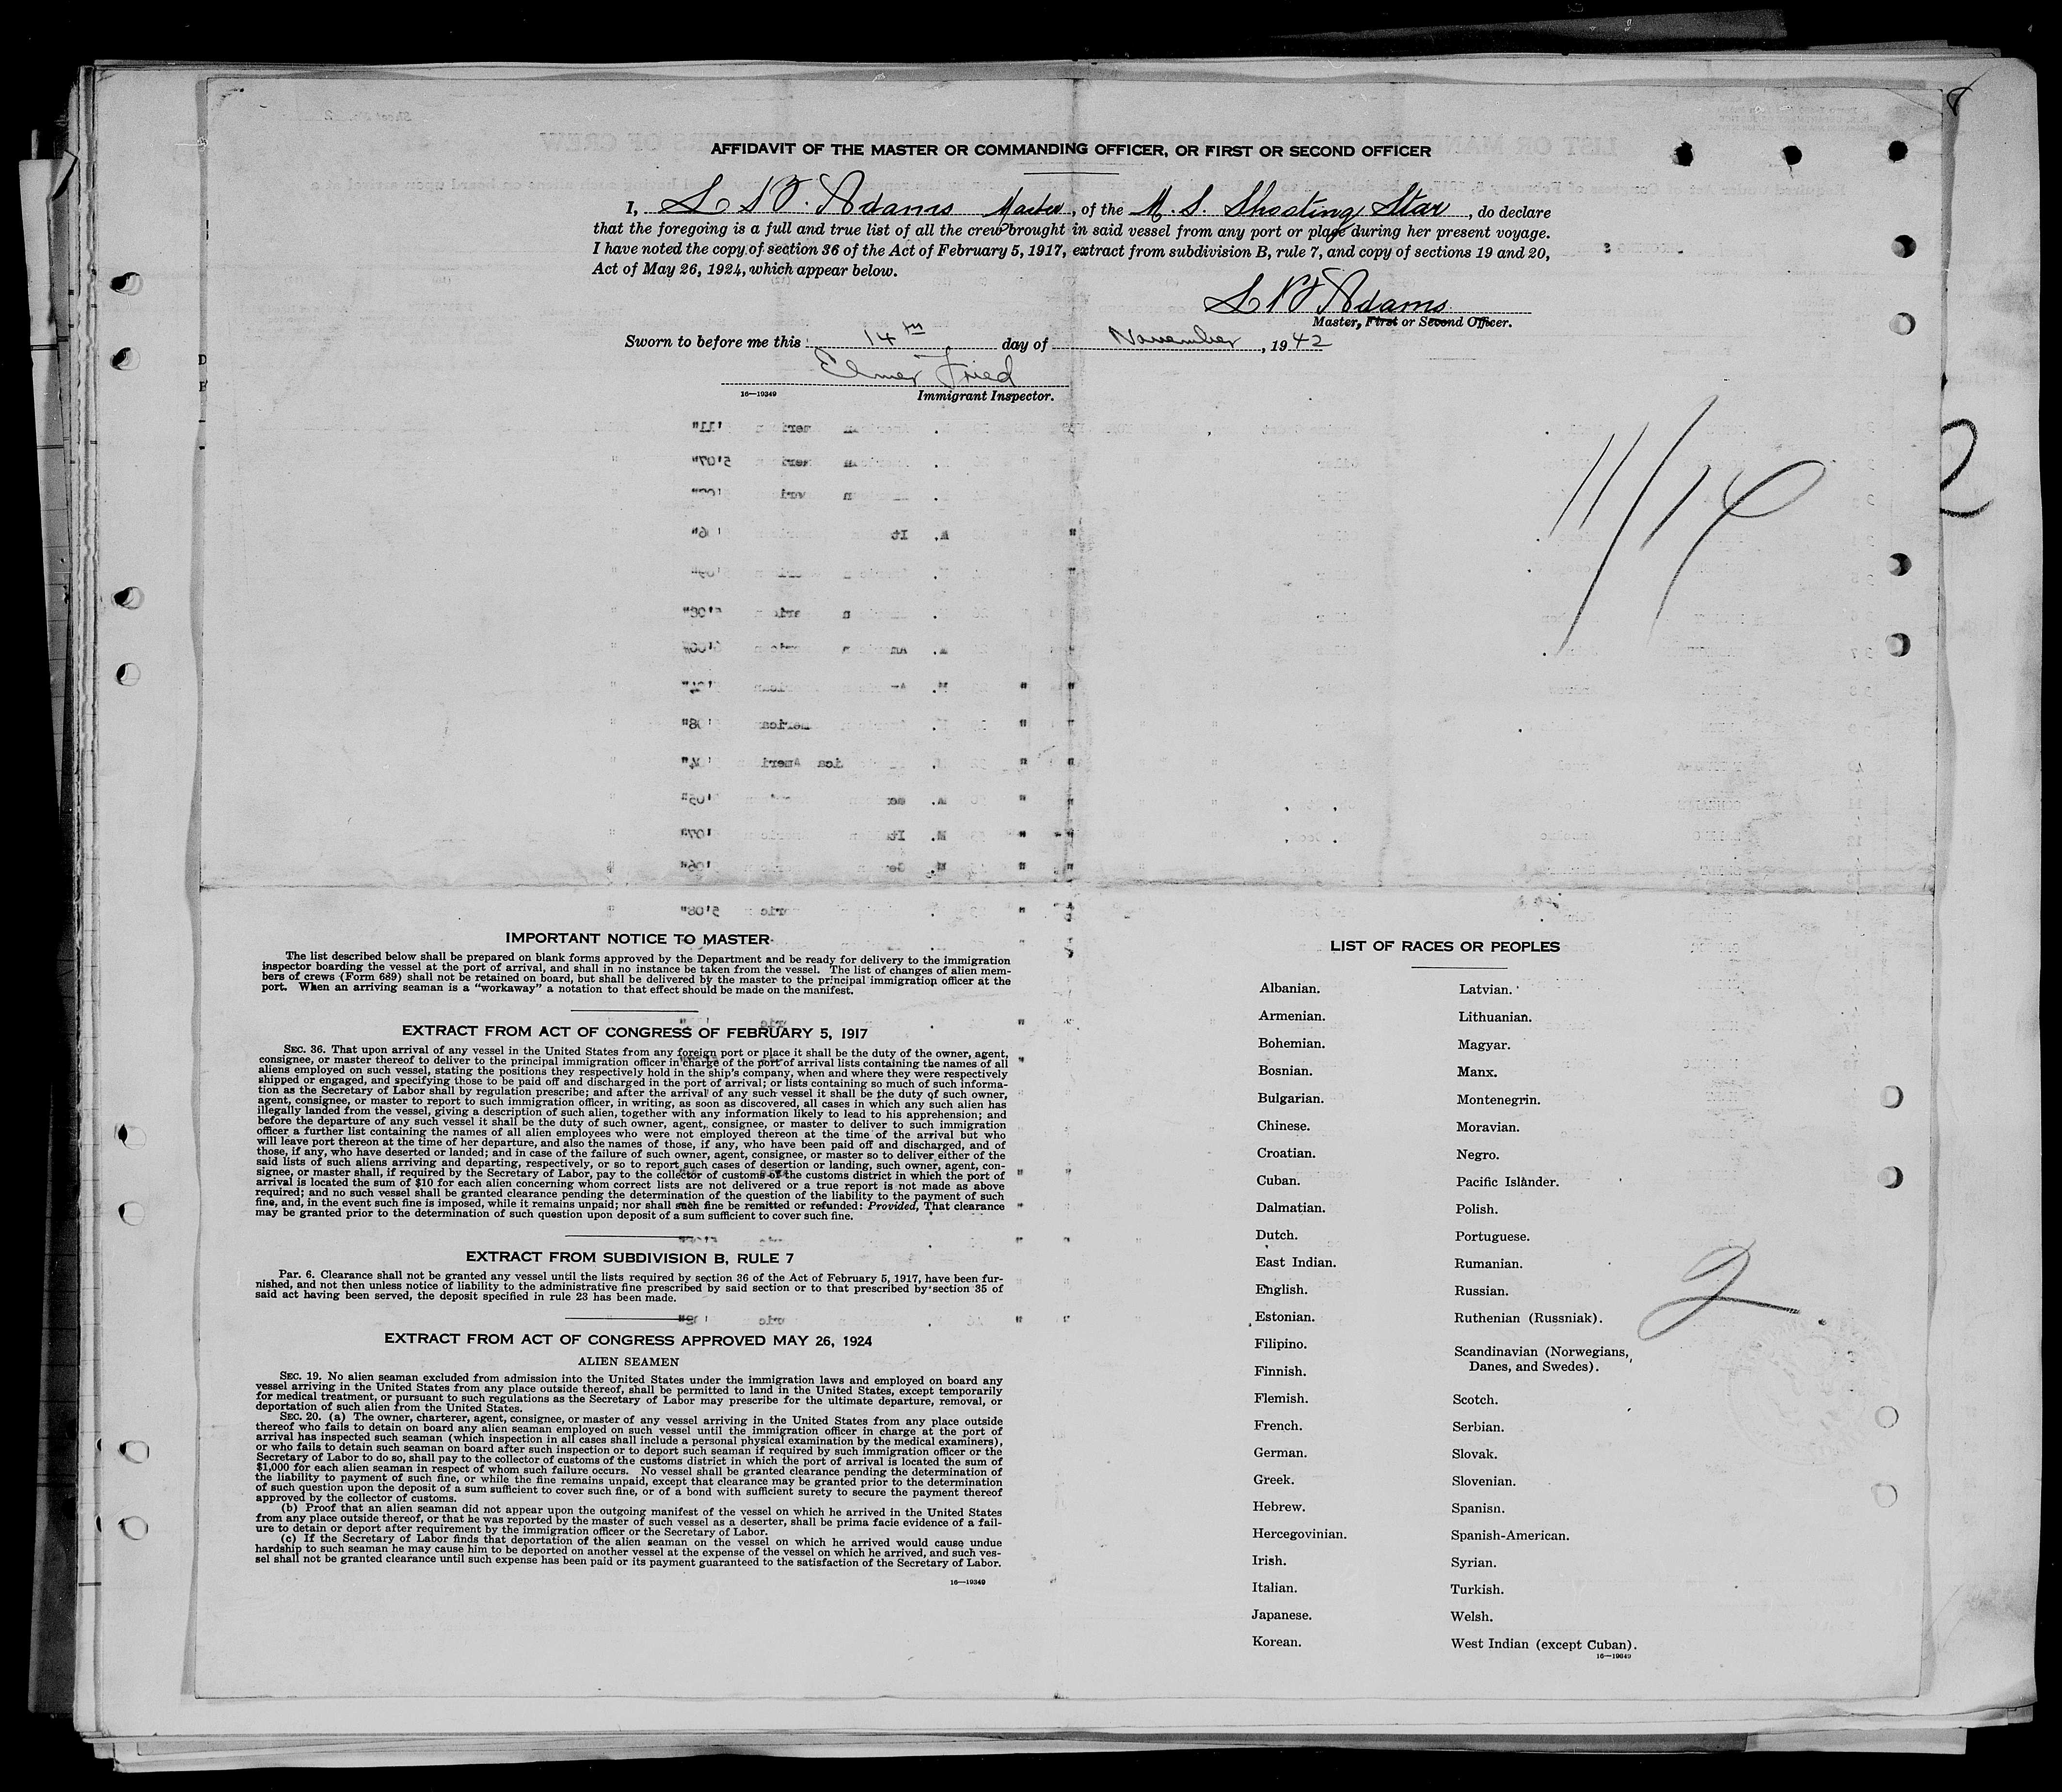 AFFIDAVIT OF THE MASTER OR COMMANDING OFFICER, OR FIRST OR SECOND OFFICER
I, Adams Master, of the M. S. Shooting Star, do declare
that the foregoing is a full and true list of all the crew brought in said vessel from any port or place during her present voyage.
I have noted the copy of section 36 of the Act of February 5, 1917, extract from subdivision B, rule 7, and copy of sections 19 and 20,
Act of May 26, 1924, which appear below.
Adams
Master, First or Second Officer.
Sworn to before me this 14th day of November, 1942
Elmer Fried
16—19349 Immigrant Inspector.
11/14
2
IMPORTANT NOTICE TO MASTER
The list described below shall be prepared on blank forms approved by the Department and be ready for delivery to the immigration
inspector boarding the vessel at the port of arrival, and shall in no instance be taken from the vessel. The list of changes of alien mem-
bers of crews (Form 689) shall not be retained on board, but shall be delivered by the master to the principal immigration officer at the
port. When an arriving seaman is a "workaway" a notation to that effect should be made on the manifest.
EXTRACT FROM ACT OF CONGRESS OF FEBRUARY 5, 1917
SEC. 36. That upon arrival of any vessel in the United States from any foreign port or place it shall be the duty of the owner, agent,
consignee, or master thereof to deliver to the principal immigration officer in charge of the port of arrival lists containing the names of all
aliens employed on such vessel, stating the positions they respectively hold in the ship's company, when and where they were respectively
shipped or engaged, and specifying those to be paid off and discharged in the port of arrival; or lists containing so much of such informa-
tion as the Secretary of Labor shall by regulation prescribe; and after the arrival of any such vessel it shall be the duty of such owner,
agent, consignee, or master to report to such immigration officer, in writing, as soon as discovered, all cases in which any such alien has
illegally landed from the vessel, giving a description of such alien, together with any information likely to lead to his apprehension; and
before the departure of any such vessel it shall be the duty of such owner, agent, consignee, or master to deliver to such immigration
officer a further list containing the names of all alien employees who were not employed thereon at the time of the arrival but who
will leave port thereon at the time of her departure, and also the names of those, if any, who have been paid off and discharged, and of
those, if any, who have deserted or landed; and in case of the failure of such owner, agent, consignee, or master so to deliver either of the
said lists of such aliens arriving and departing, respectively, or so to report such cases of desertion or landing, such owner, agent, con-
signee, or master shall, if required by the Secretary of Labor, pay to the collector of customs of the customs district in which the port of
arrival is located the sum of $10 for each alien concerning whom correct lists are not delivered or a true report is not made as above
required; and no such vessel shall be granted clearance pending the determination of the question of the liability to the payment of such
fine, and, in the event such fine is imposed, while it remains unpaid; nor shall such fine be remitted or refunded: Provided, That clearance
may be granted prior to the determination of such question upon deposit of a sum sufficient to cover such fine.
EXTRACT FROM SUBDIVISION B, RULE 7
Par. 6. Clearance shall not be granted any vessel until the lists required by section 36 of the Act of February 5, 1917, have been fur-
nished, and not then unless notice of liability to the administrative fine prescribed by said section or to that prescribed by section 35 of
said act having been served, the deposit specified in rule 23 has been made.
EXTRACT FROM ACT OF CONGRESS APPROVED MAY 26, 1924
ALIEN SEAMEN
SEC. 19. No alien seaman excluded from admission into the United States under the immigration laws and employed on board any
vessel arriving in the United States from any place outside thereof, shall be permitted to land in the United States, except temporarily
for medical treatment, or pursuant to such regulations as the Secretary of Labor may prescribe for the ultimate departure, removal, or
deportation of such alien from the United States.
SEC. 20. (a) The owner, charterer, agent, consignee, or master of any vessel arriving in the United States from any place outside
thereof who fails to detain on board any alien seaman employed on such vessel until the immigration officer in charge at the port of
arrival has inspected such seaman (which inspection in all cases shall include a personal physical examination by the medical examiners),
or who fails to detain such seaman on board after such inspection or to deport such seaman if required by such immigration officer or the
Secretary of Labor to do so, shall pay to the collector of customs of the customs district in which the port of arrival is located the sum of
$1,000 for each alien seaman in respect of whom such failure occurs. No vessel shall be granted clearance pending the determination of
the liability to payment of such fine, or while the fine remains unpaid, except that clearance may be granted prior to the determination
of such question upon the deposit of a sum sufficient to cover such fine, or of a bond with sufficient surety to secure the payment thereof
approved by the collector of customs.
(b) Proof that an alien seaman did not appear upon the outgoing manifest of the vessel on which he arrived in the United States
from any place outside thereof, or that he was reported by the master of such vessel as a deserter, shall be prima facie evidence of a fail-
ure to detain or deport after requirement by the immigration officer or the Secretary of Labor.
(c) If the Secretary of Labor finds that deportation of the alien seaman on the vessel on which he arrived would cause undue
hardship to such seaman he may cause him to be deported on another vessel at the expense of the vessel on which he arrived, and such ves-
sel shall not be granted clearance until such expense has been paid or its payment guaranteed to the satisfaction of the Secretary of Labor.
16—19349
LIST OF RACES OR PEOPLES
Albanian. Latvian.
Armenian. Lithuanian.
Bohemian. Magyar.
Bosnian. Manx.
Bulgarian. Montenegrin.
Chinese. Moravian.
Croatian. Negro.
Cuban. Pacific Islander.
Dalmatian. Polish.
Dutch. Portuguese.
East Indian. Rumanian.
English. Russian.
Estonian. Ruthenian (Russniak).
Filipino. Scandinavian (Norwegians,
Finnish. Danes, and Swedes).
Flemish. Scotch.
French. Serbian.
German. Slovak.
Greek. Slovenian.
Hebrew. Spanish.
Hercegovinian. Spanish-American.
Irish. Syrian.
Italian. Turkish.
Japanese. Welsh.
Korean. West Indian (except Cuban).
16—19349
2